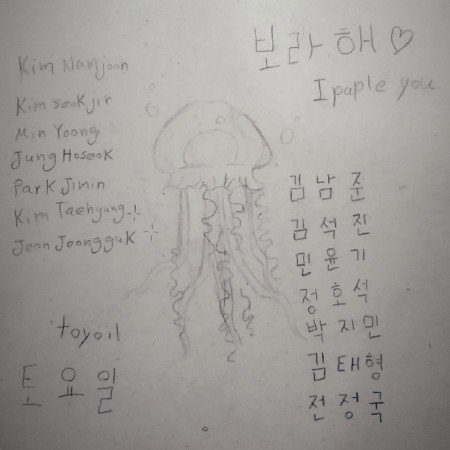 보라해♡
I paple you
Kim Namjoon
Kim seokjin
Min Yoongi
Jung Hoseok
Park Jimin
Kim Taehyung
Jeon Jeongguk
김남준
김석진
민윤기
정호석
박지민
김태형
전정국
toyoil
토요일